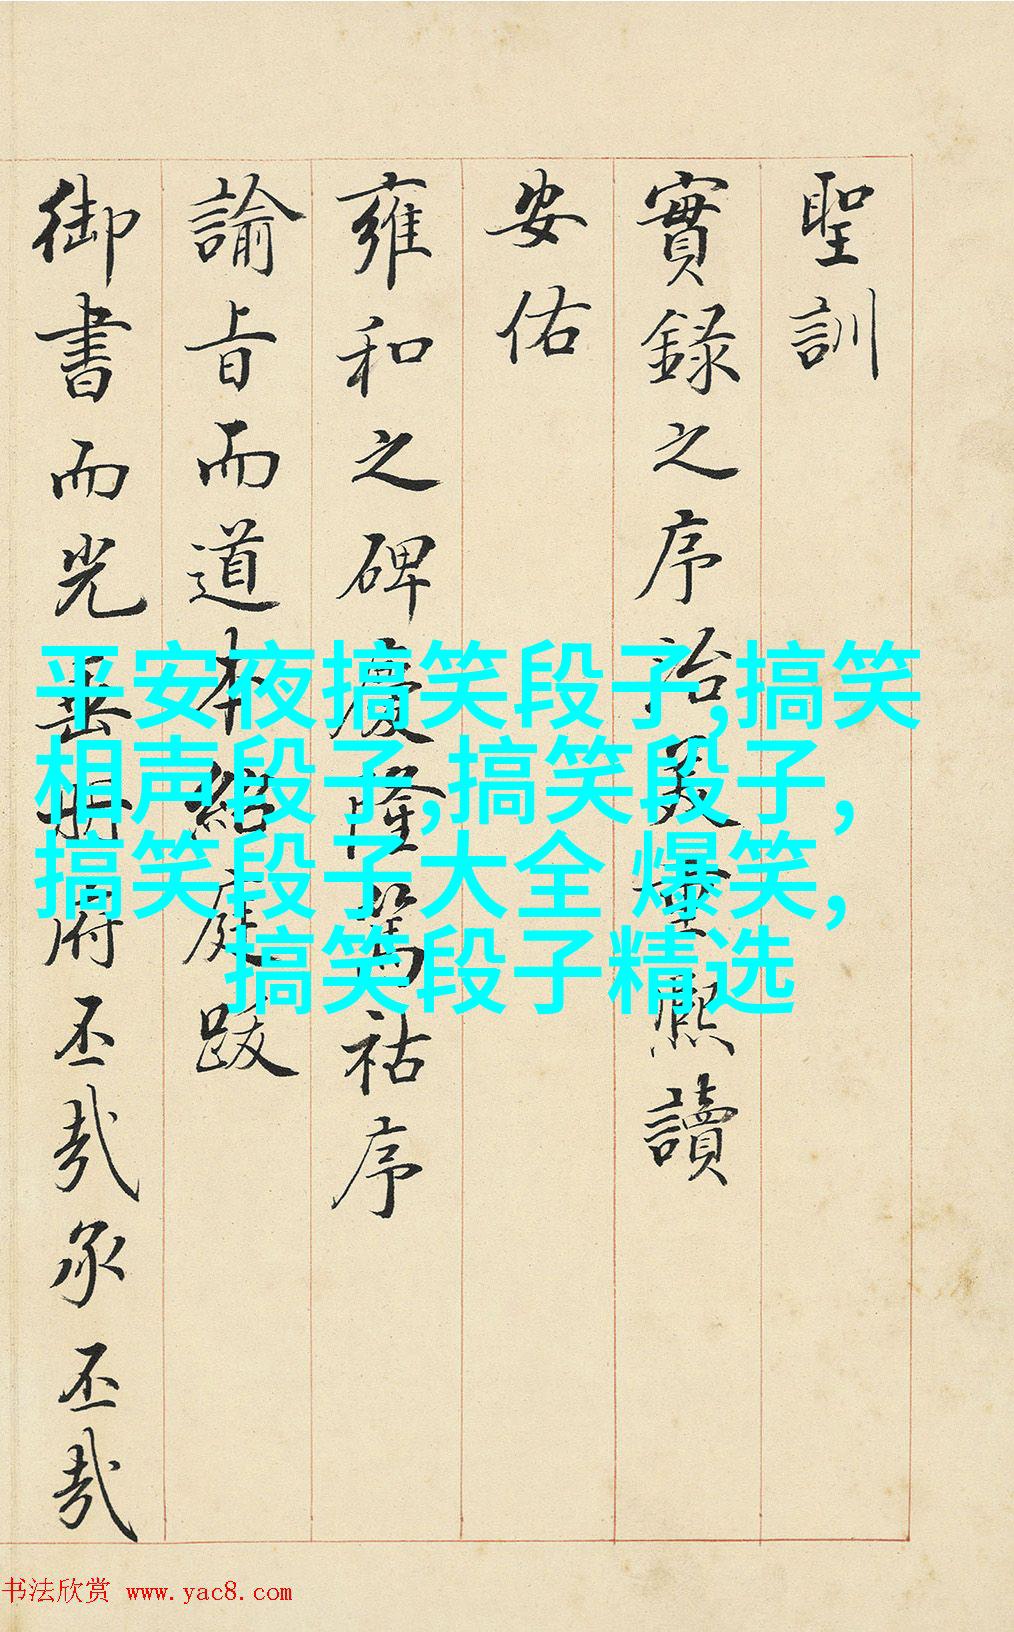 聖訓
實録之序詒美重熈讀
安佑
雍和之碑慶隆篤祜序
諭旨而道本紹庭跋
御書而光垂明府丕哉承丕哉
平安夜搞笑段子,搞笑
相声段子,搞笑段子,
搞笑段子大全 爆笑,
搞笑段子精选
书法欣赏 www.yac8.com